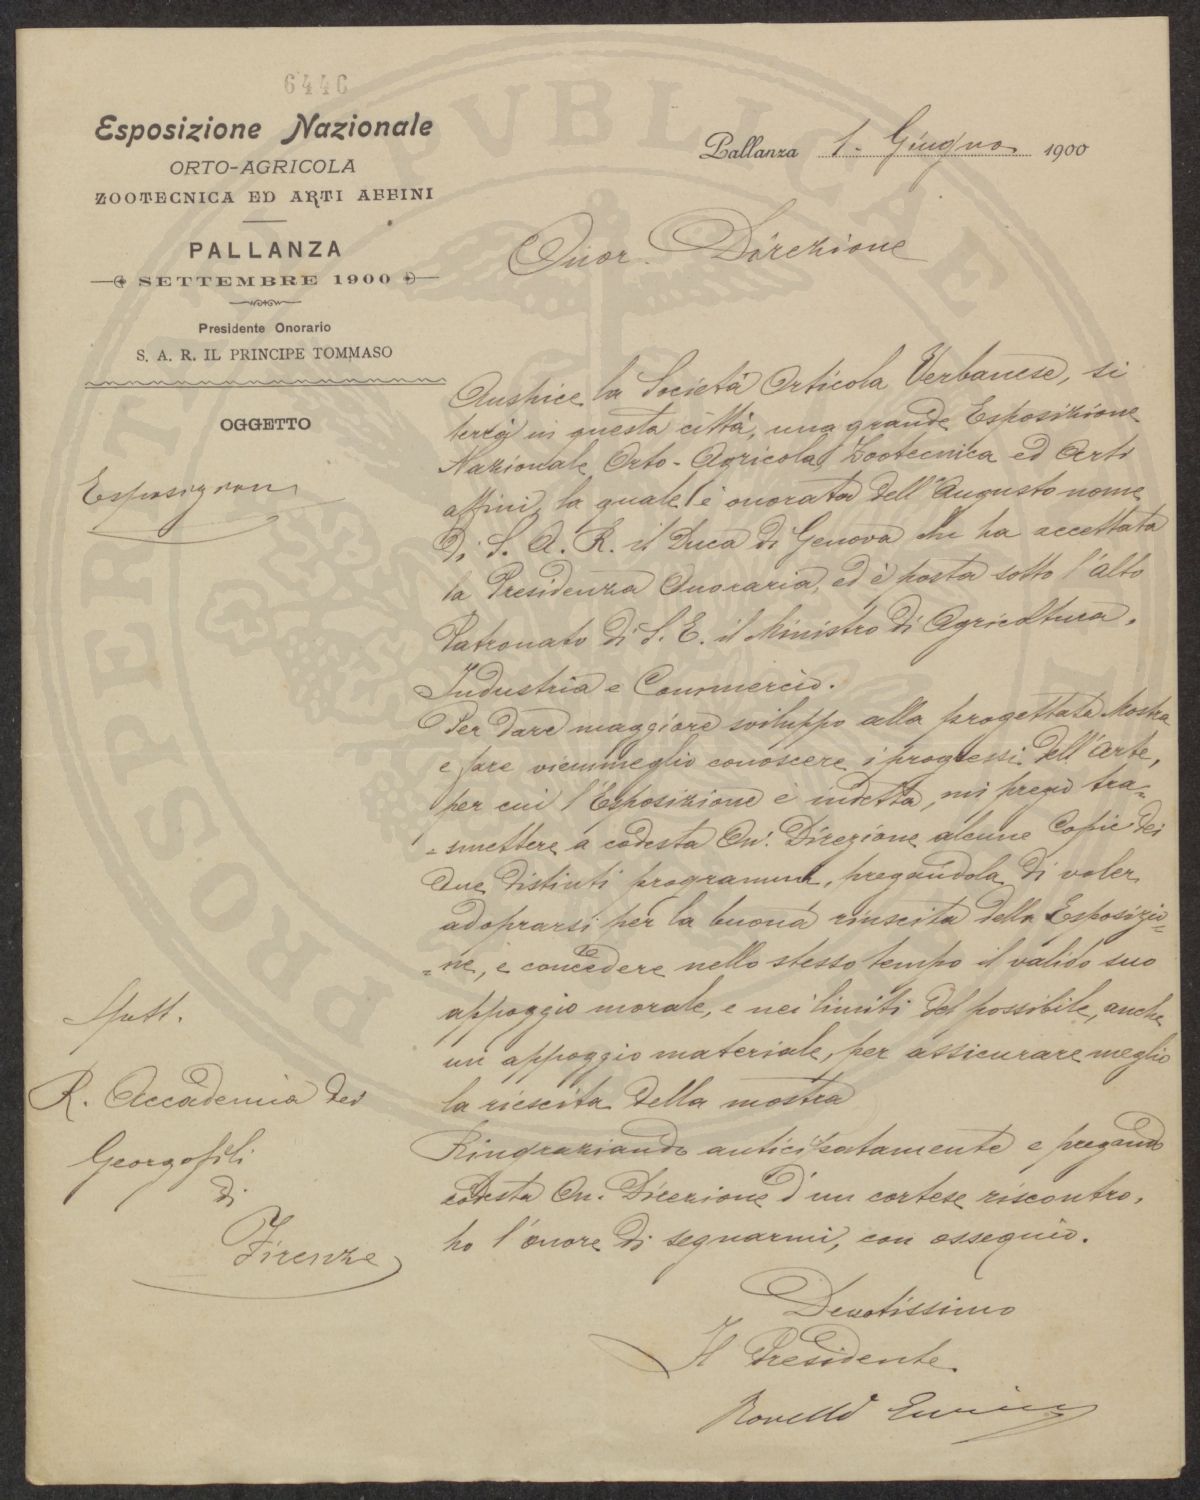 6440
Esposizione Nazionale
ORTO-AGRICOLA
ZOOTECNICA ED ARTI AFFINI
PALLANZA
SETTEMBRE 1900
Presidente Onorario
S. A. R. IL PRINCIPE TOMMASO
OGGETTO
Esposizione
Pallanza 1. Giugno 1900
Onor. Direzione
Auspice la Società Orticola Verbanese, si
terrà in questa città, una grande Esposizione
Nazionale Orto-Agricola, Zootecnica ed Arti
affini, la quale è onorata dell'Augusto nome
di S. A. R. il Duca di Genova che ha accettata
la Presidenza Onoraria, ed è posta sotto l'alto
Patronato di S. E. il Ministro di Agricoltura,
Industria e Commercio.
Per dare maggiore sviluppo alla progettata Mostra
e fare viemmeglio conoscere i progressi dell'Arte,
per cui l'Esposizione è indetta, mi pregio tra=
=smettere a codesta On. Direzione alcune Copie dei
due distinti programmi, pregandola di voler
adoprarsi per la buona riuscita della Esposizio=
=ne, e concedere nello stesso tempo il valido suo
appoggio morale, e nei limiti del possibile, anche
un appoggio materiale, per assicurare meglio
la riescita della mostra
Ringraziando anticipatamente e pregando
codesta On. Direzione d'un cortese riscontro,
ho l'onore di segnarmi, con ossequio.
Devotissimo
Il Presidente
Rovelli
Spett.
R. Accademia dei
Georgofili
di
Firenze
PROSPERITATI
PVBLICAE